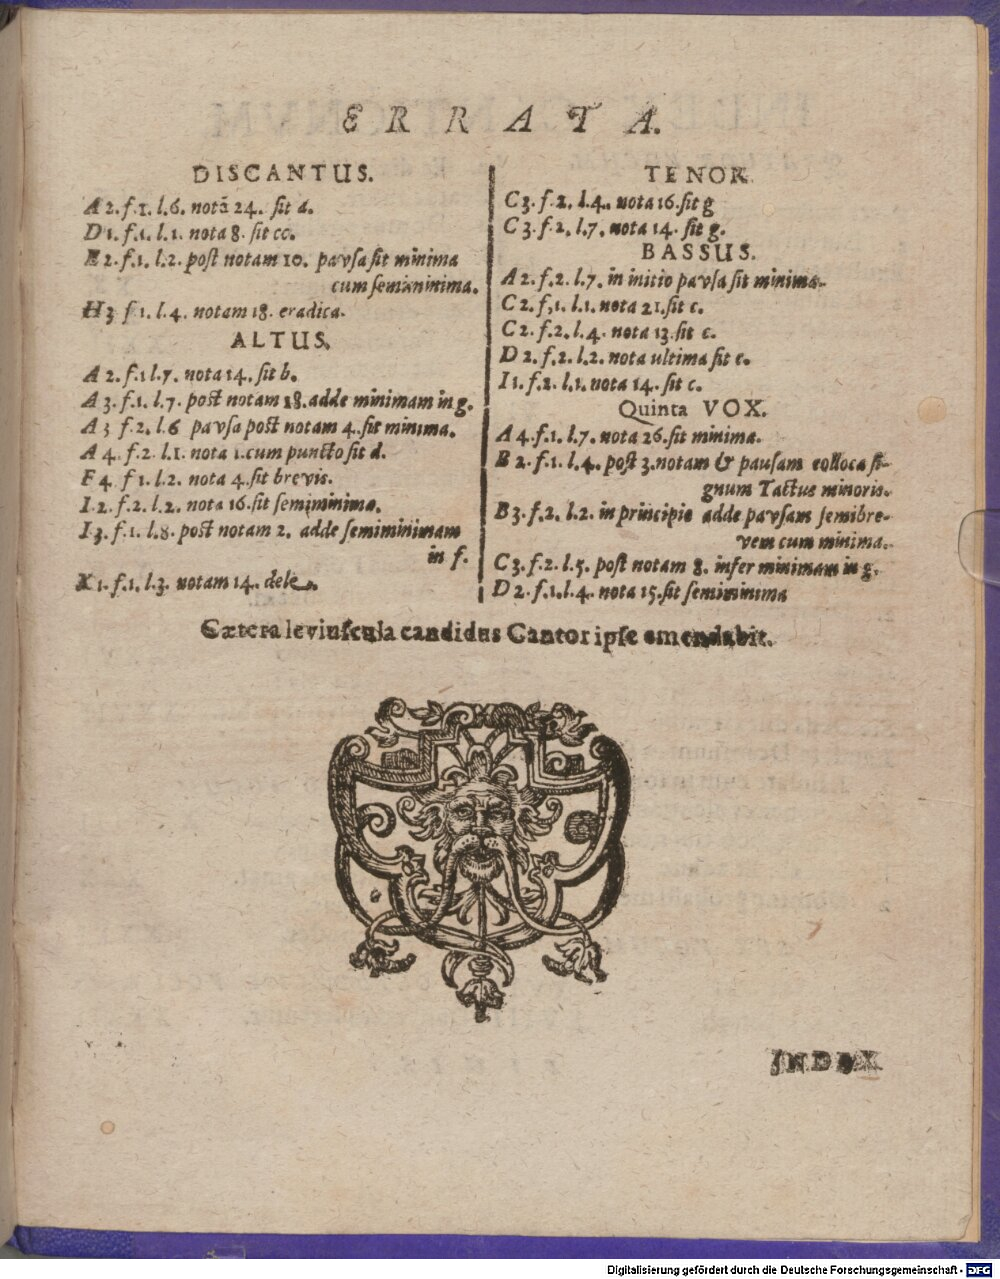 ERRATA.
DISCANTUS.
A 2. f. 1. l. 6. notā 24. sit d.
D 1. f. 1. l. 1. nota 8. sit cc.
E 2. f. 1. l. 2. post notam 10. pavsa sit minima
cum semiminima.
H 3 f 1. l. 4. notam 18. eradica.
ALTUS.
A 2. f. 1 l. 7. nota 14. sit b.
A 3. f. 1. l. 7. post notam 18. adde minimam in g.
A 3 f. 2. l. 6 pavsa post notam 4. sit minima.
A 4. f. 2 l. 1. nota 1. cum puncto sit d.
F 4. f 1. l. 2. nota 4. sit brevis.
I. 2. f. 2. l. 2. nota 16. sit semiminima.
I 3. f. 1. l. 8. post notam 2. adde semiminimam
in f.
K 1. f. 1. l. 3. notam 14. dele.
TENOR.
C 3. f. 2. l. 4. nota 16. sit g
C 3. f. 2. l. 7. nota 14. sit g.
BASSUS.
A 2. f. 2. l. 7. in initio pavsa sit minima.
C 2. f. 1. l. 1. nota 21. sit c.
C 2. f. 2. l. 4. nota 13. sit c.
D 2. f. 2. l. 2. nota ultima sit e.
I 1. f. 2. l. 1. nota 14. sit c.
Quinta VOX.
A 4. f. 1. l. 7. nota 26. sit minima.
B 2. f. 1. l. 4. post 3. notam & pausam colloca si-
gnum Tactus minoris.
B 3. f. 2. l. 2. in principio adde pavsam semibre-
vem cum minima.
C 3. f. 2. l. 5. post notam 8. infer minimam in g.
D 2. f. 1. l. 4. nota 15. sit semiminima
Cætera leviuscula candidus Cantor ipse emendabit.
INDEX
Digitalisierung gefördert durch die Deutsche Forschungsgemeinschaft - DFG